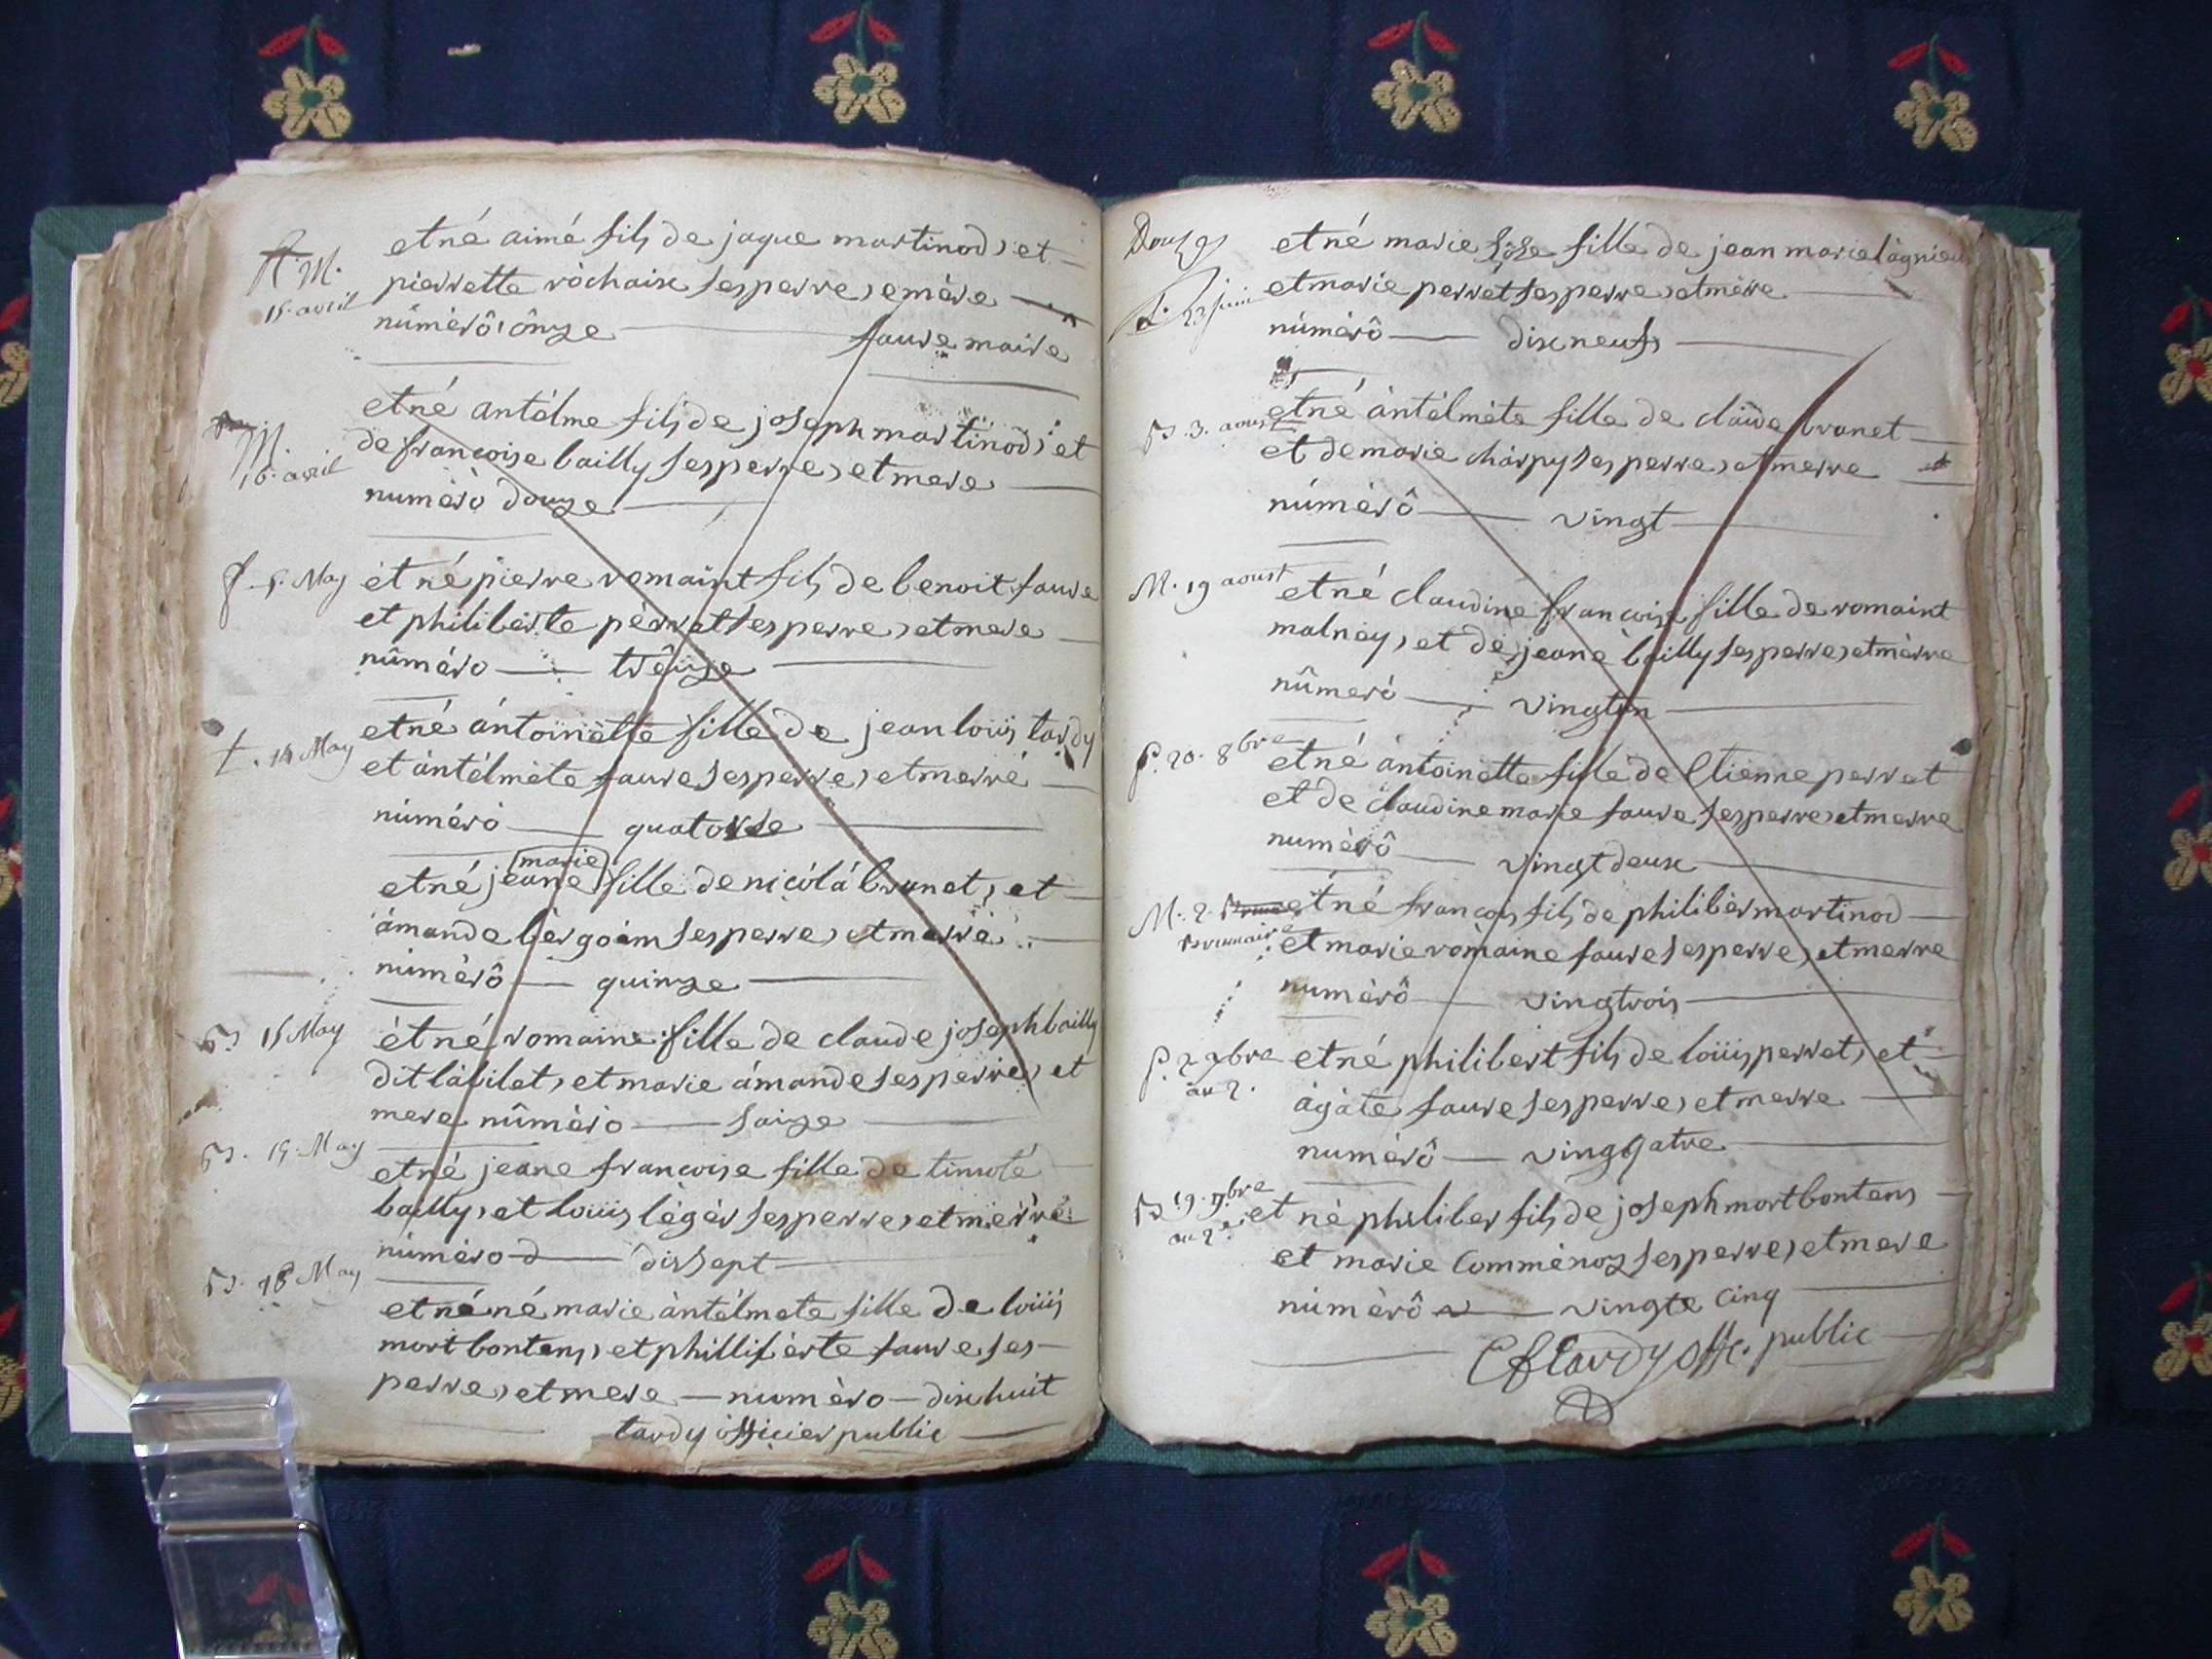 M.
15. avril
et né aimé fils de jaque martinod, et
pierrette rochaix ses perre, e mère
numérô onze faure maire
M.
16. avril
et né antélme fils de joseph martinod, et
de francoise bailly ses perre, et mere
numéro douze
f. 5. May
et né pierre romaint fils de benoit faure
et philiberte pérret ses perre, et mere
numéro trêize
t. 14 May
et né ántoinètte fille de jean loüis tardy
et ántélmète faure ses perre, et merre
numéro quatorse
et né jeane marie fille de nicólá brunet, et
ámande bergoim ses perre, et merre
numérô quinze
B. 15 May
ét né romaine fille de claude joseph bailly
dit lábilet, et marie ámande ses perre, et
mere numéro saize
B. 15. May
et né jeane francoise fille de timoté
bailly, et loüis légér ses perre, et merre
numéro disept
B. 18 May
et né né marie ántélmete fille de loüis
mortbontens, et phillibèrte faure ses
perre, et mere numéro dixhuit
tardy officier public
Dous 9
L. 23 juin
et né marie fille de jean marie lágnieu
et marie perret ses perre, et mère
numérô dixneufs
B. 3. aoust
et né ántélméte fille de claude brunet
et de marie chárpy ses perre, et merre
numérô vingt
M. 19 aoust
et né claudine francoise fille de romaint
malnéy, et de jeane bailly ses perre, et mèrre
nûmeró vingtun
P. 20. 8bre
et né ántoinette fille de Etienne perret
et de claudine marie faure ses perre, et merre
numérô vingtdeux
M. 2.
Brumaire
ét né francois fils de philibér martinod
et marie romaine faure ses perre, et merre
numérô vingtrois
P. 2 9bre
an 2.
et né philibert fils de loüis perret, et
ágáte faure ses perre, et merre
numérô vingqatre
B. 19. 9bre
an 2.
et né philiber fils de joseph mortbontens
et marie Comménoz ses perre, et mere
numérô vingte cinq
Cf tardy offic. public